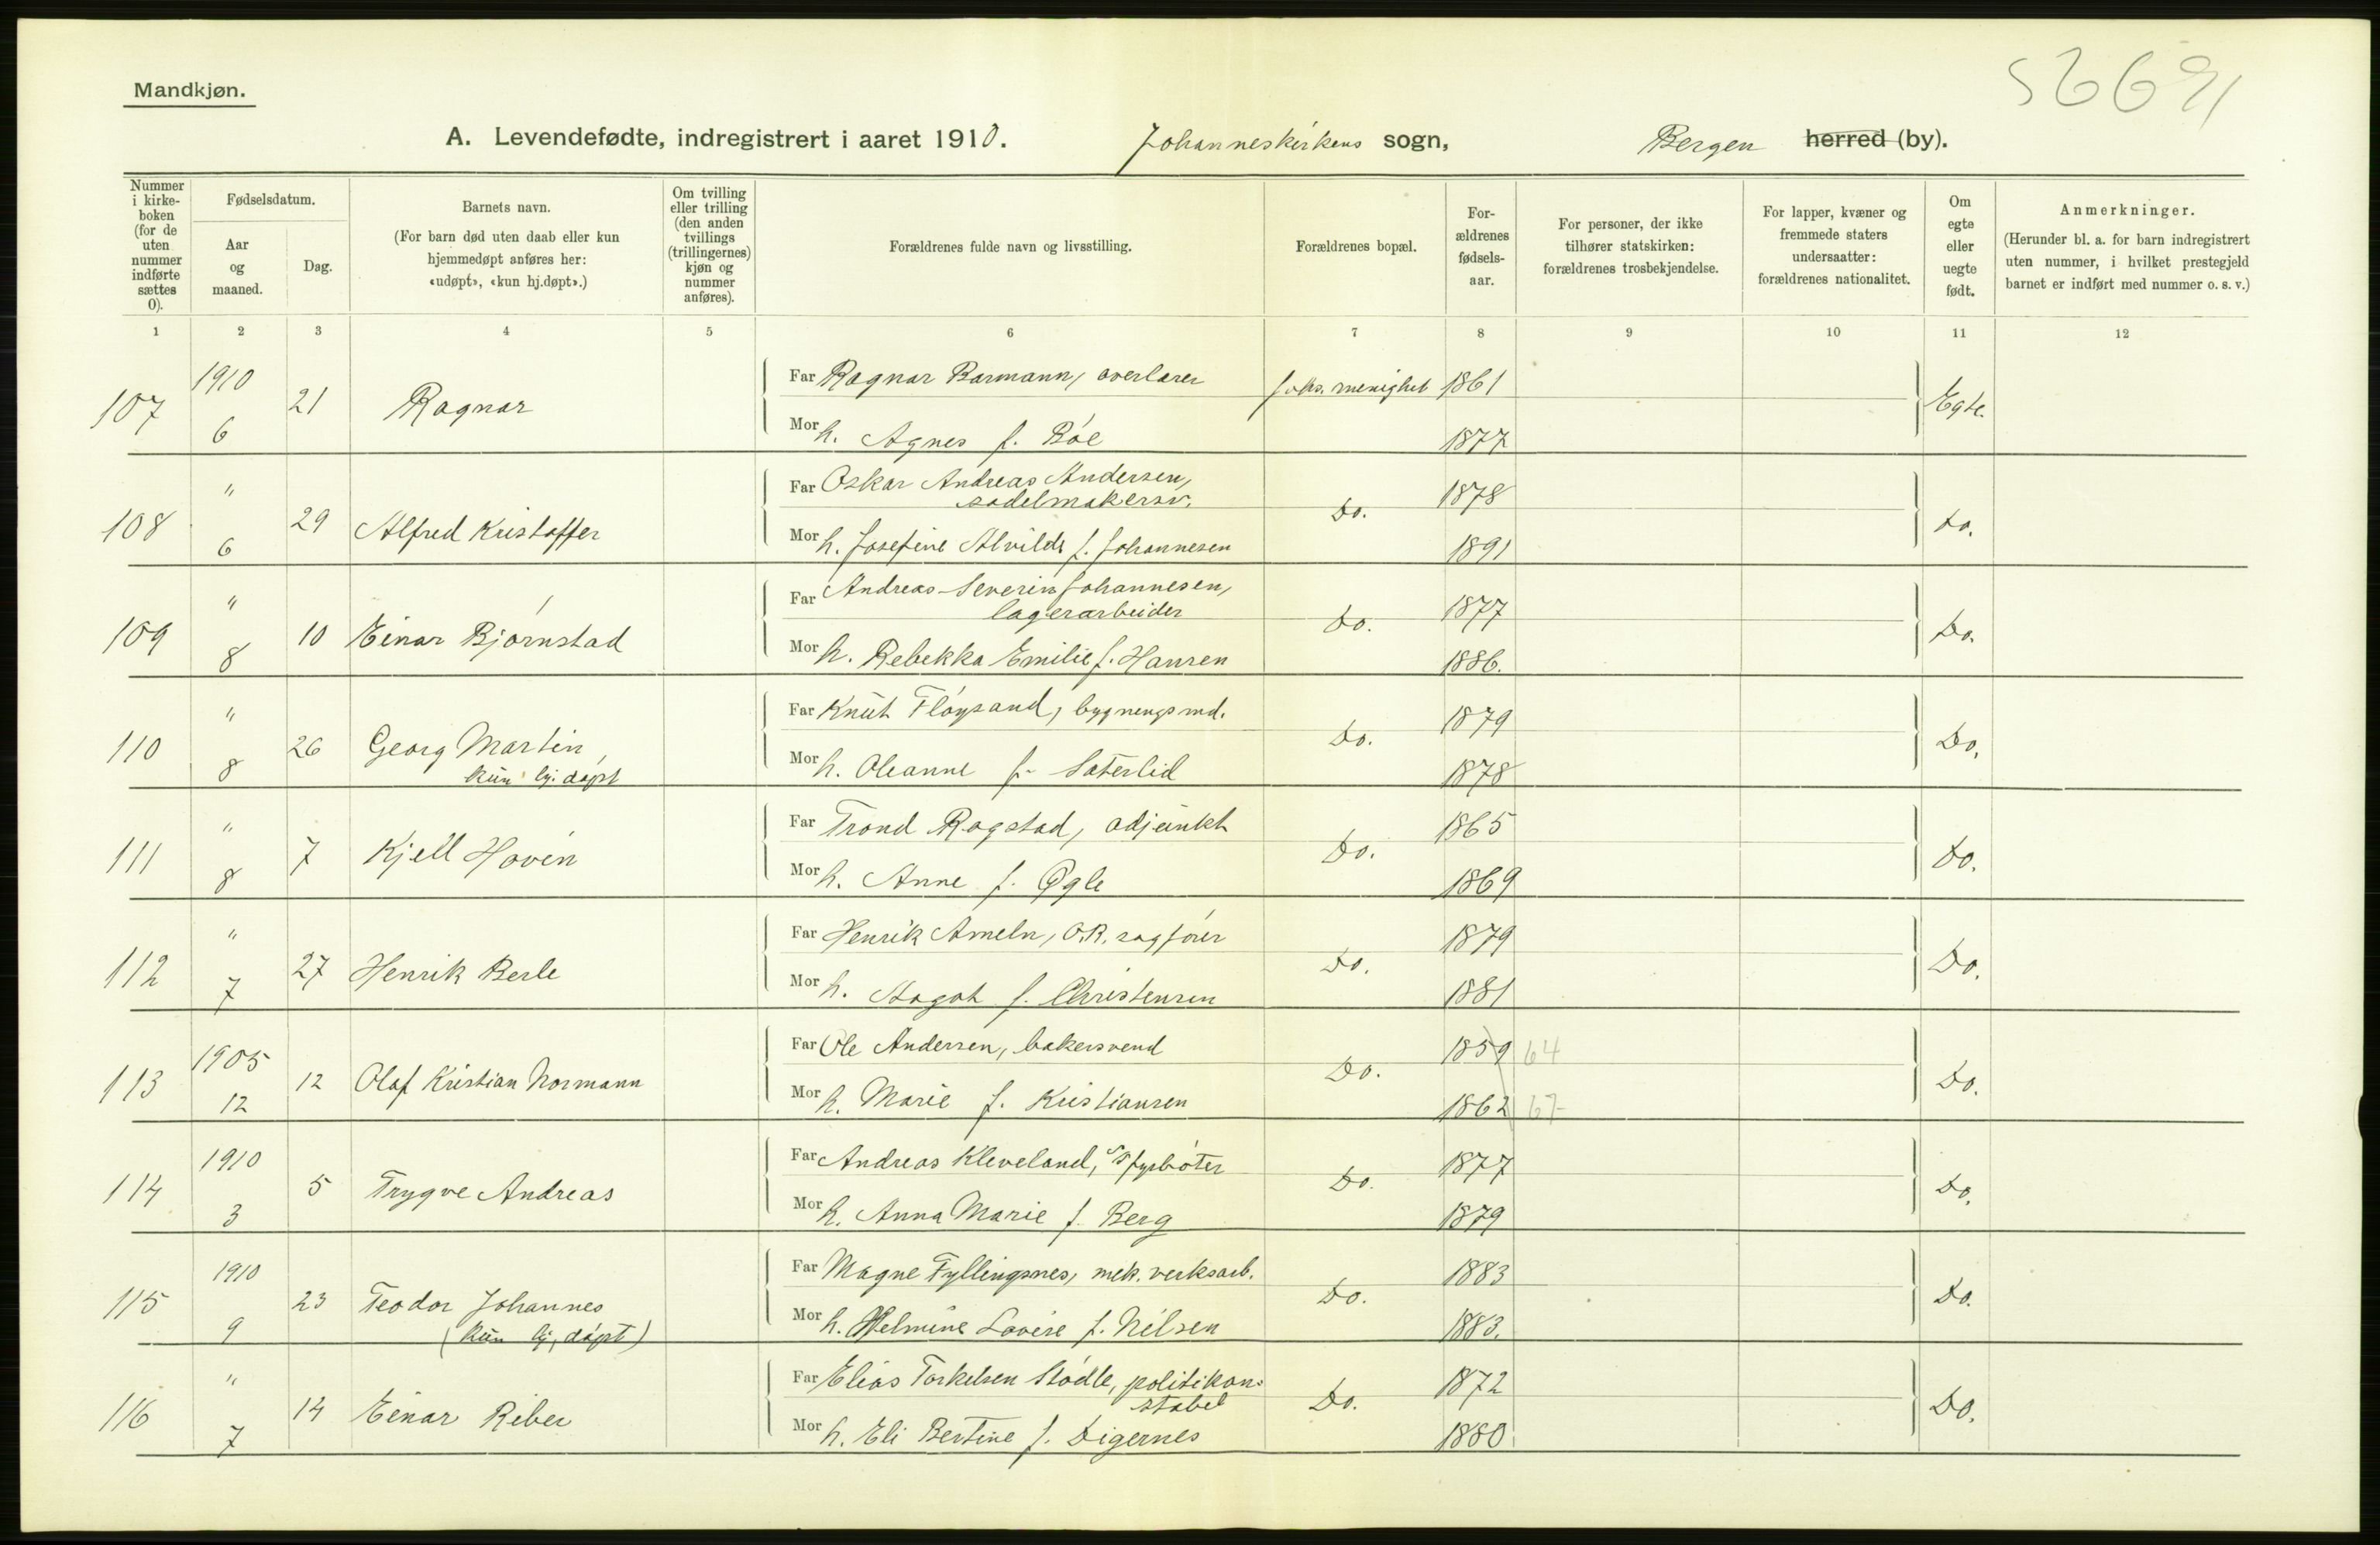 56691
Mandkjøn.
A. Levendefødte, indregistrert i aaret 1910. Johanneskirkens sogn, Bergen herred (by).
Nummer i kirke-boken (for de uten nummer indførte sættes 0).
Fødselsdatum.
Aar og maaned.
Dag.
Barnets navn.
(For barn død uten daab eller kun hjemmedøpt anføres her: «udøpt», «kun hj.døpt».)
Om tvilling eller trilling (den anden tvillings (trillingernes) kjøn og nummer anføres).
Forældrenes fulde navn og livsstilling.
Forældrenes bopæl.
For-ældrenes fødsels-aar.
For personer, der ikke tilhører statskirken: forældrenes trosbekjendelse.
For lapper, kvæner og fremmede staters undersaatter: forældrenes nationalitet.
Om egte eller uegte født.
Anmerkninger.
(Herunder bl. a. for barn indregistrert uten nummer, i hvilket prestegjeld barnet er indført med nummer o. s. v.)
1 2 3 4 5 6 7 8 9 10 11 12
107 1910 6 21 Ragnar
Far Ragnar Barmann, overlærer Johs. menighet 1861 Egte.
Mor h. Agnes f. Bøe 1877
108 " 6 29 Alfred Kristoffer
Far Oskar Andreas Andersen, sadelmakersv. Do. 1878 Do.
Mor h. Josefine Alvilde f. Johannesen 1891
109 " 8 10 Einar Bjørnstad
Far Andreas Severin Johannesen, lagerarbeider Do. 1877 Do.
Mor h. Rebekka Emilie f. Hansen 1886.
110 " 8 26 Georg Martin, kun hj. døpt
Far Knut Fløysand, bygningsmd. Do. 1879 Do.
Mor h. Oleanne f. Sæterlid 1878
111 " 8 7 Kjell Hovin
Far Trond Rogstad, adjunkt Do. 1865 Do.
Mor h. Anne f. Øgle 1869
112 " 7 27 Henrik Berle
Far Henrik Ameln, O.R. sagfører Do. 1879 Do.
Mor h. Aagot f. Christensen 1881
113 1905 12 12 Olaf Kristian Normann
Far Ole Andersen, bakersvend Do. 1859 64 Do.
Mor h. Marie f. Kristiansen 1862 67
114 1910 3 5 Trygve Andreas
Far Andreas Kleveland, s/s fyrbøter Do. 1877 Do.
Mor h. Anna Marie f. Berg 1879
115 1910 9 23 Teodor Johannes (kun hj. døpt)
Far Magne Fyllingsnes, mek. verksarb. Do. 1883 Do.
Mor h. Helmine Lovise f. Nilsen 1883.
116 " 7 14 Einar Riber
Far Elias Torkelsen Stødle, politikon-stabel Do. 1872 Do.
Mor h. Eli Bertine f. Digernes 1880